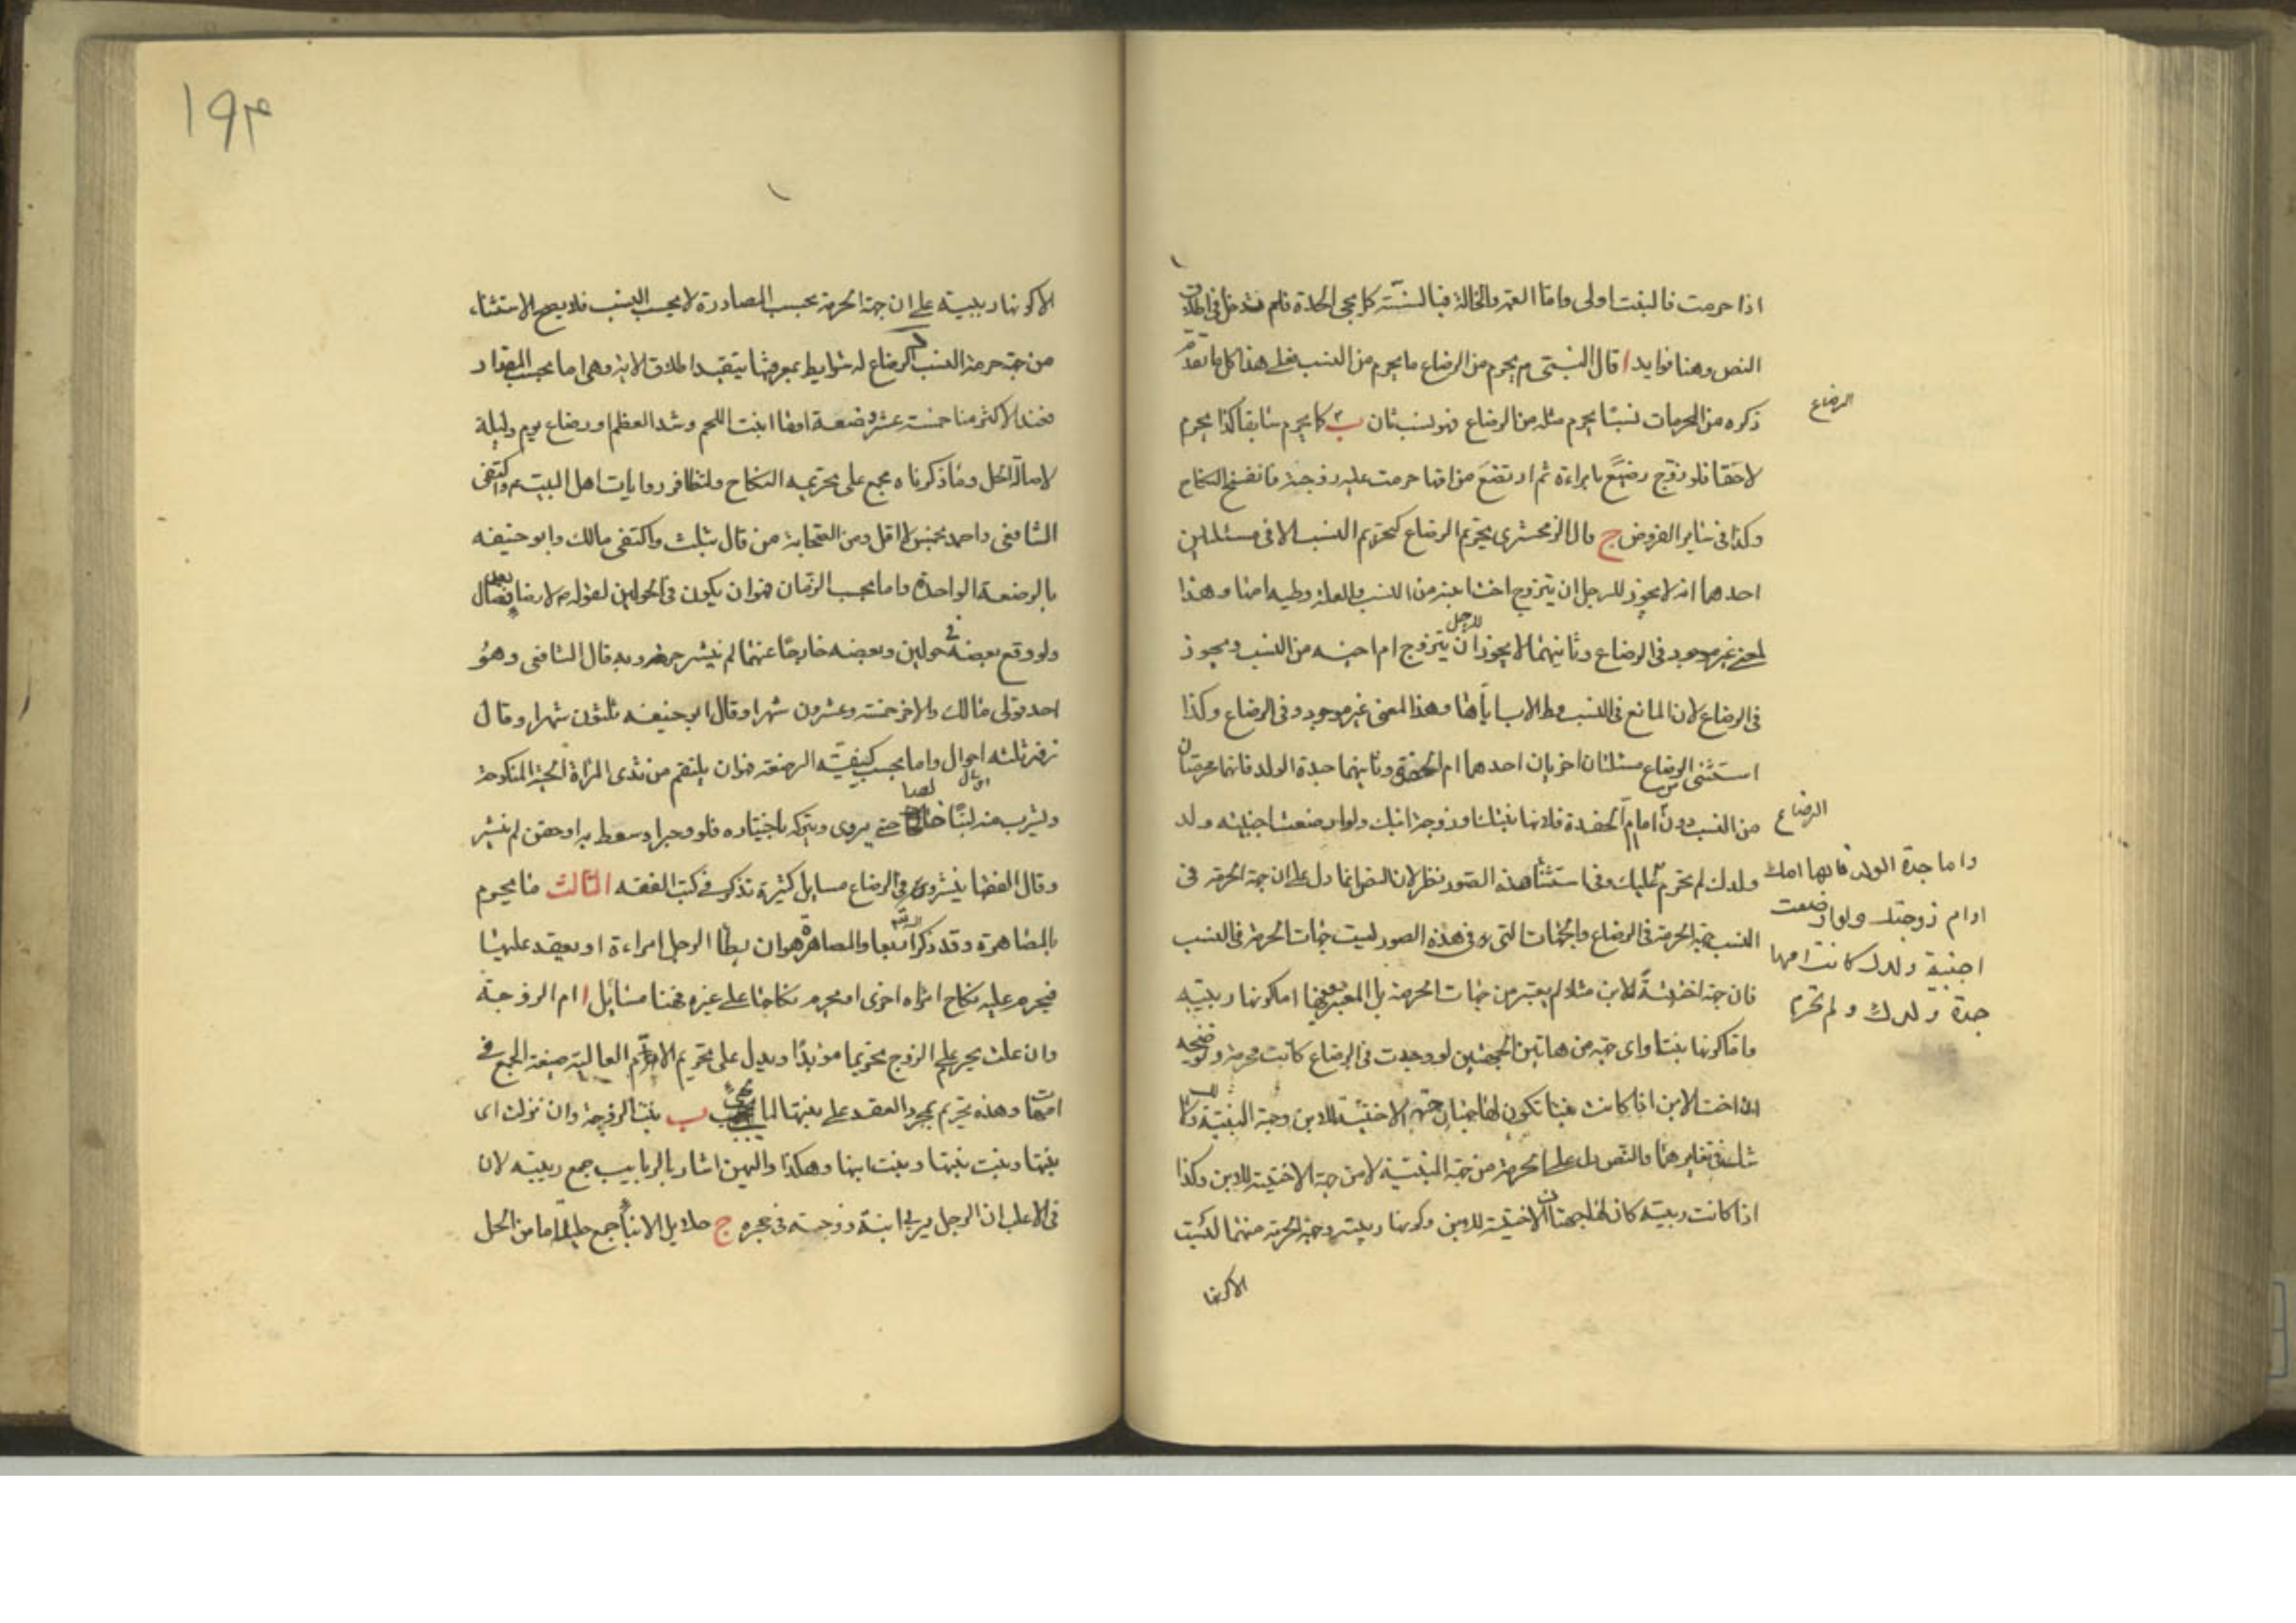 اذا حرمت فالبنت اولى واما العمة والخالة فبالسنة كما يجى الجدة فلم تدخل فى اطلاق
النص وهنا فوايد ا قال النبى ص يحرم من الرضاع ما يحرم من النسب فعلى هذا كل ما تقدم
الرضاع
ذكره من المحرمات نسبا يحرم مثله من الرضاع فهو نسبتان ب كما يحرم سابقا كذا يحرم
لاحقا فلو زوج رضيع بامراءة ثم ارتضع من امها حرمت عليه زوجته فانفسخ النكاح
وكذا فى ساير الفروض ج قال الزمخشرى تحريم الرضاع كتحريم النسب الا فى مسئلتين
احدهما انه لا يجوز للرجل ان يتزوج اخت ابنه من النسب والعلة وطيه امها وهذا
المعنى غير موجود فى الرضاع وثانيهما لا يجوز للرجل ان يتزوج ام اخيه من النسب ويجوز
فى الرضاع لان المانع فى النسب وطى الاب اياها وهذا المعنى غير موجود فى الرضاع وكذا
استثنى من الرضاع مسئلتان اخريان احدهما ام الحفدة وثانيهما جدة الولد فانهما محرمتان
من النسب دون الرضاع اما ام الحفدة فلانها بنتك او زوجة ابنك ولو ارضعت اجنبية ولد
ولدك لم تحرم عليك وفى استثنا هذه الصور نظر لان النص انما دل على ان جهة الحرمة فى
واما جدة الولد فانها امك
او ام زوجتك ولو ارضعت
اجنبية ولدك كانت امها
جدة ولدك ولم تحرم
النسب جهة الحرمة فى الرضاع والجهات التى فى هذه الصور ليست جهات الحرمة فى النسب
فان جهة اختية الابن مثلا لم يعتبر من جهات الحرمة بل المعتبر فيها اما كونها ربيبة
واما كونها بنتا واى جهة من هاتين الجهتين لو وجدت فى الرضاع كانت محرمة وتوضيحه
ان اخت الابن اذا كانت بنتا تكون لها جهتان جهة الاختية للابن وجهة البنتية ولا
شك فى تغايرهما والنص دل على الحرمة من جهة البنتية لا من جهة الاختية للابن وكذا
اذا كانت ربيبة كان لها جهتان الاختية للابن وكونها ربيبته وجهة الحرمة منهما ليست
الا كونها
۱۹۴
الا كونها ربيبة على ان جهة الحرمة بحسب المصاهرة لا بحسب النسب فلا يصح الاستثناء
من جهة حرمة النسب د الرضاع له شرايط بمعرفتها يتقيد اطلاق الاية وهى اما بحسب المقدار
فعند الاكثر منا خمسة عشر رضعة او ما انبت اللحم وشد العظم او رضاع يوم وليلة
لاصالة الحل وما ذكرناه مجمع على تحريمه النكاح ولتظافر روايات اهل البيت ع واكتفى
الشافعى واحمد بخمس لا اقل ومن الصحابة من قال بثلث واكتفى مالك وابو حنيفه
بالرضعة الواحدة واما بحسب الزمان فهو ان يكون فى الحولين لقوله ص لا رضاع بعد فصال
ولو وقع بعضه فى حولين وبعضه خارجا عنهما لم ينشر حرمة وبه قال الشافعى وهو
احد قولى مالك والاخر خمسة وعشرون شهرا وقال ابو حنيفه ثلثون شهرا وقال
زفر ثلثه احوال واما بحسب كيفية الرضعة فهو ان يلتقم من ثدى المراة الحية المنكوحة
ويشرب منه لبنا خالصا حتى يروى ويتركه باختياره فلو وجر او سعط به او حقن لم ينشر
وقال الفقها ينشر وفى الرضاع مسايل كثيرة تذكر فى كتب الفقه الثالث ما يحرم
بالمصاهرة وقد ذكر اربعا والمصاهرة هو ان يطأ الرجل امراءة او يعقد عليها
فيحرم عليه نكاح امراة اخرى او يحرم نكاحها على غيره فهنا مسائل ا ام الزوجة
وان علت يحرم على الزوج تحريما مؤبدا ويدل على تحريم الام العالية صيغة الجمع فى
امهات وهذه تحريم بمجرد العقد على بنتها لما يجى ب بنت الزوجة وان نزلت اى
بنتها وبنت بنتها وبنت ابنها وهكذا واليهن اشار بالربايب جمع ربيبه لان
فى الاغلب ان الرجل يربى ابنة زوجته فى حجره ج حلايل الابناء جمع حليلة اما من الحل